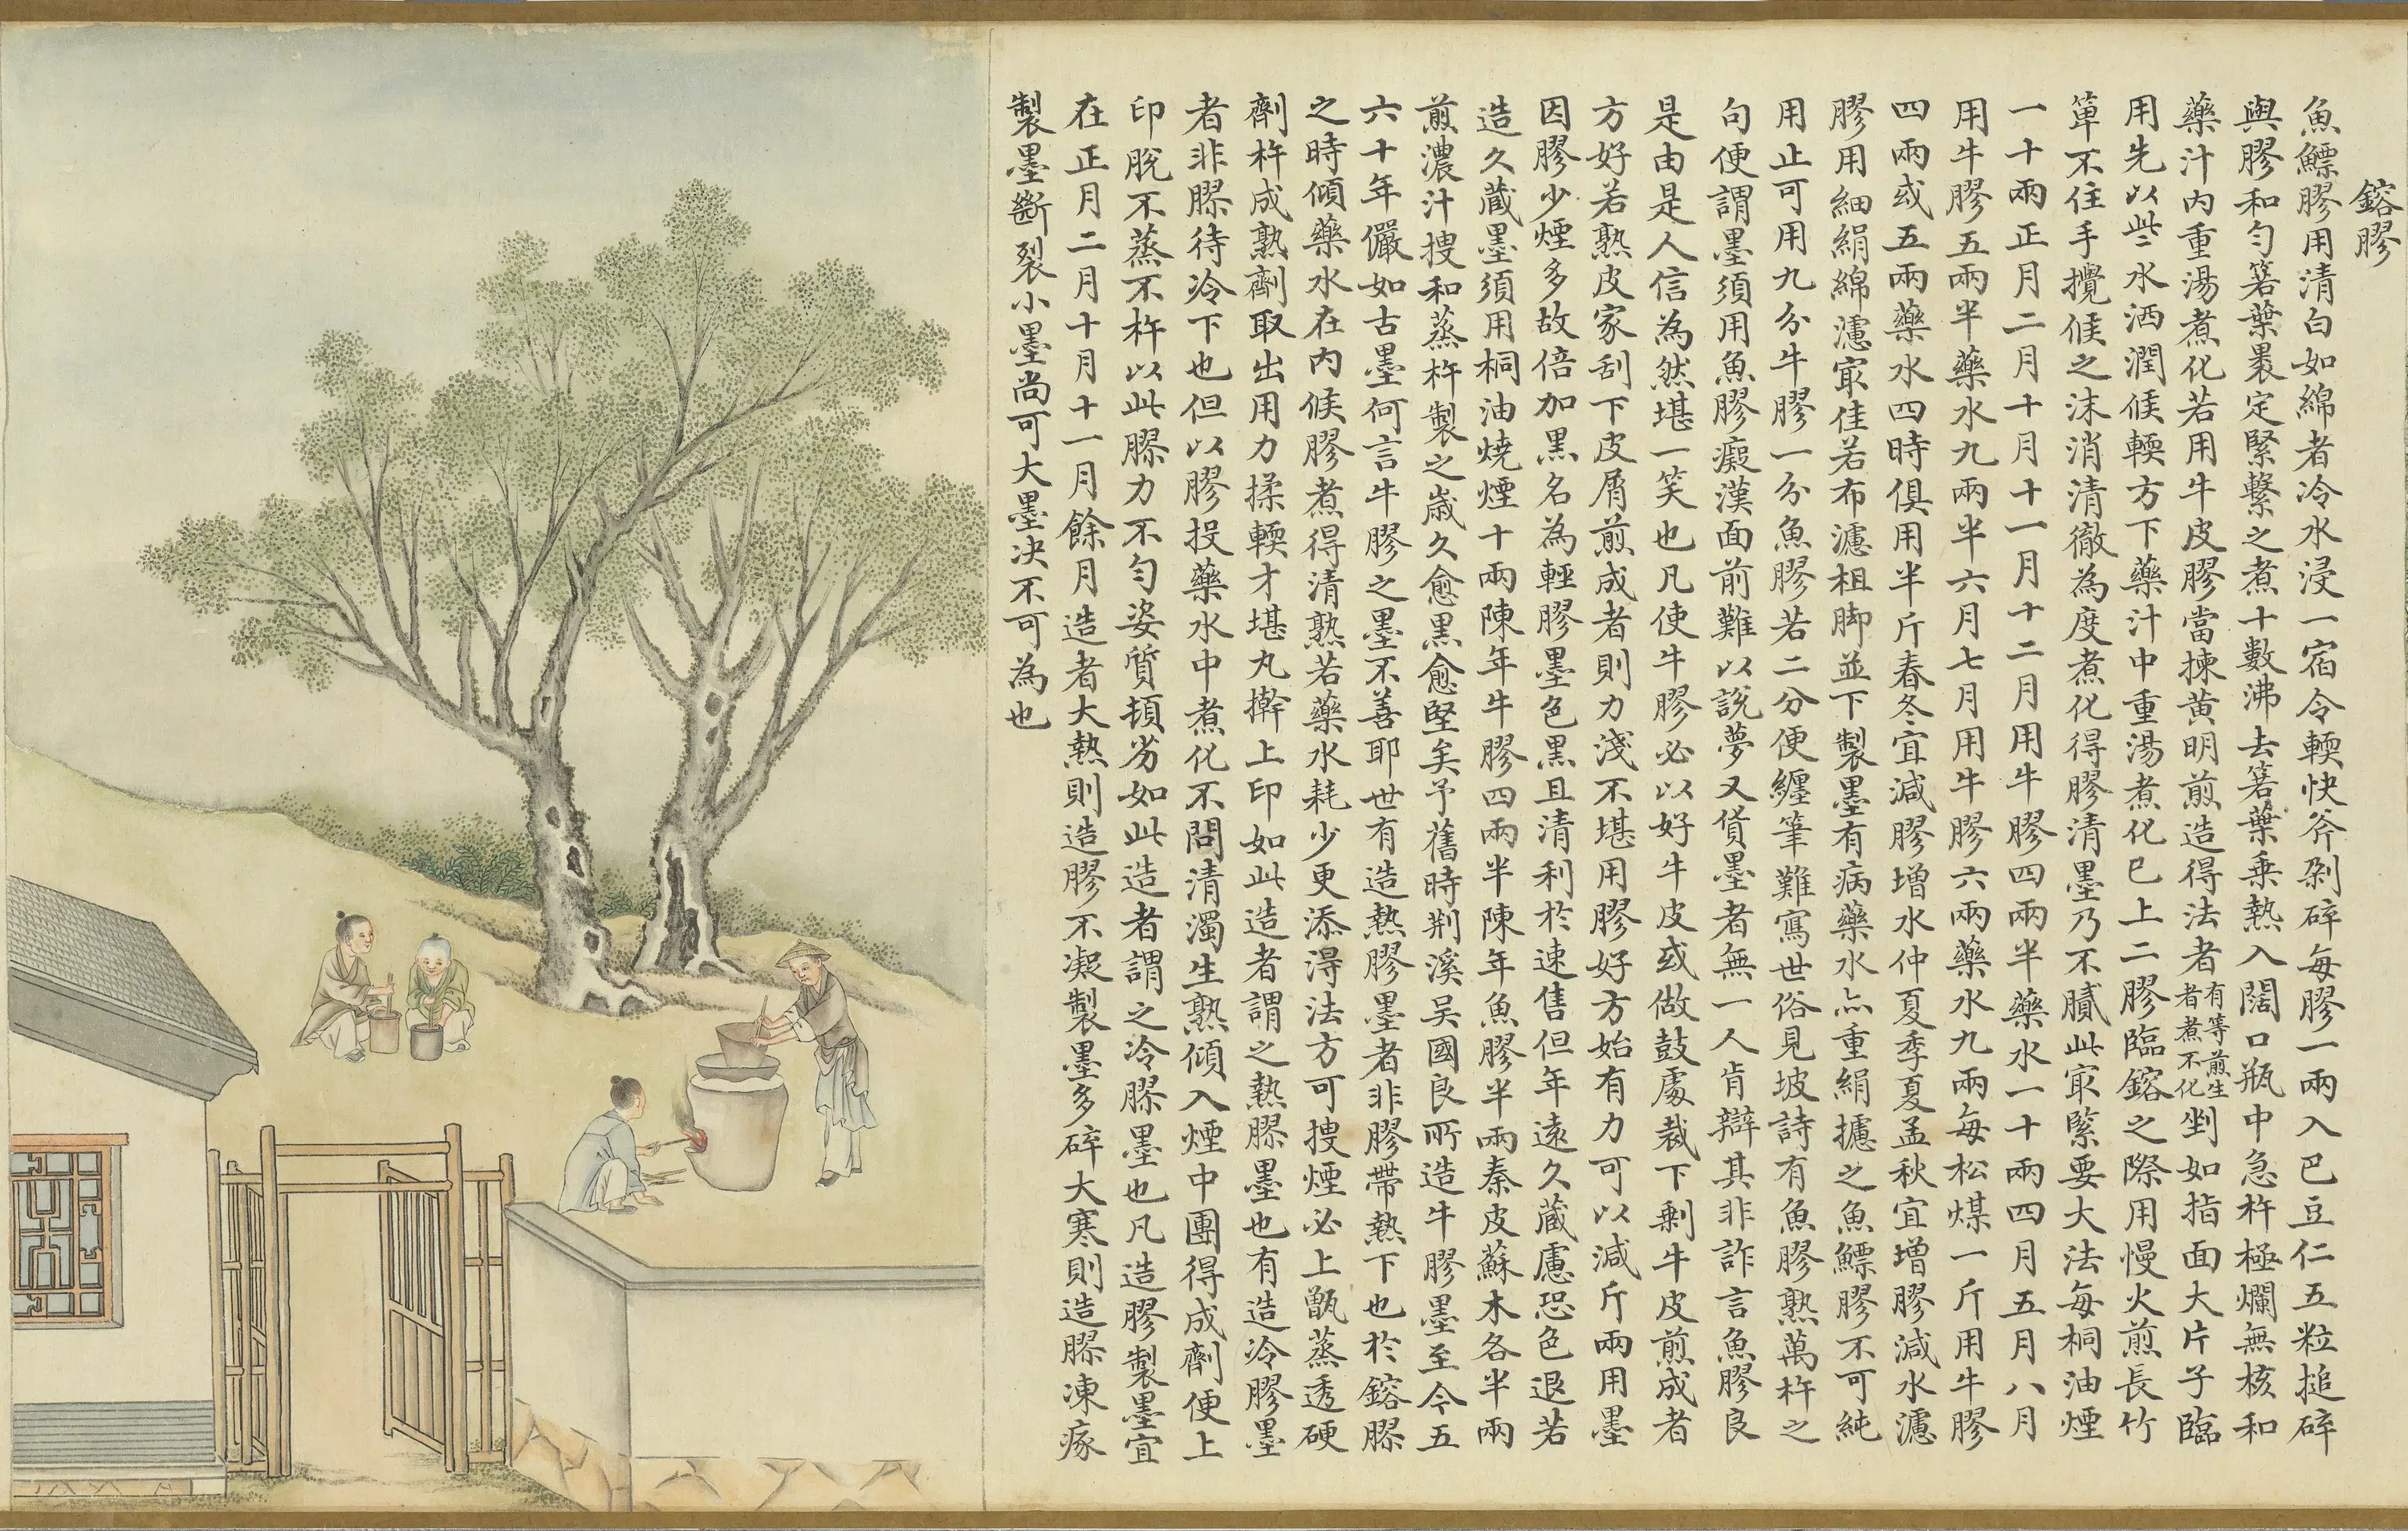 鎔膠
魚鰾膠用清白如綿者冷水浸一宿令輭快斧剁碎每膠一兩入巴豆仁五粒搥碎
與膠和勻箬葉裹定緊繫之煮十數沸去箬葉乗熱入闊口瓶中急杵極爛無核和
藥汁內重湯煮化若用牛皮膠當揀黃明煎造得法者有等煎生者煮不化剉如指面大片子臨
用先以些水洒潤候輭方下藥汁中重湯煮化已上二膠臨鎔之際用慢火煎長竹
箄不住手攪候之沫消清徹為度煮化得膠清墨乃不膩此㝡緊要大法每桐油煙
一十兩正月二月十月十一月十二月用牛膠四兩半藥水一十兩四月五月八月
用牛膠五兩半藥水九兩半六月七月用牛膠六兩藥水九兩每松煤一斤用牛膠
四兩或五兩藥水四時俱用半斤春冬宜減膠增水仲夏季夏孟秋宜增膠減水濾
膠用細絹綿濾㝡佳若布濾柤脚並下製墨有病藥水亦重絹攄之魚鰾膠不可純
用止可用九分牛膠一分魚膠若二分便纏筆難寫世俗見坡詩有魚膠熟萬杵之
句便謂墨須用魚膠癡漢面前難以說夢又貨墨者無一人肯辯其非詐言魚膠良
是由是人信為然堪一笑也凡使牛膠必以好牛皮或做鼓處裁下剰牛皮煎成者
方好若熟皮家刮下皮屑煎成者則力淺不堪用膠好方始有力可以減斤兩用墨
因膠少煙多故倍加黑名為輕膠墨色黑且清利於速售但年遠久蔵慮恐色退若
造久蔵墨須用桐油燒煙十兩陳年牛膠四兩半陳年魚膠半兩秦皮蘇木各半兩
煎濃汁搜和蒸杵製之嵗久愈黑愈堅矣予舊時荆溪吳國良所造牛膠墨至今五
六十年儼如古墨何言牛膠之墨不善耶世有造熱膠墨者非膠帶熱下也於鎔膠
之時傾藥水在內候膠煮得清熟若藥水耗少更添淂法方可搜煙必上甑蒸透硬
劑杵成熟劑取出用力揉輭才堪丸擀上印如此造者謂之熱膠墨也有造冷膠墨
者非膠待冷下也但以膠投藥水中煮化不問清濁生熟傾入煙中團得成劑便上
印脫不蒸不杵以此膠力不勻姿質頓劣如此造者謂之冷膠墨也凡造膠製墨宜
在正月二月十月十一月餘月造者大熱則造膠不凝製墨多碎大寒則造膠凍瘃
製墨斷裂小墨尚可大墨決不可為也